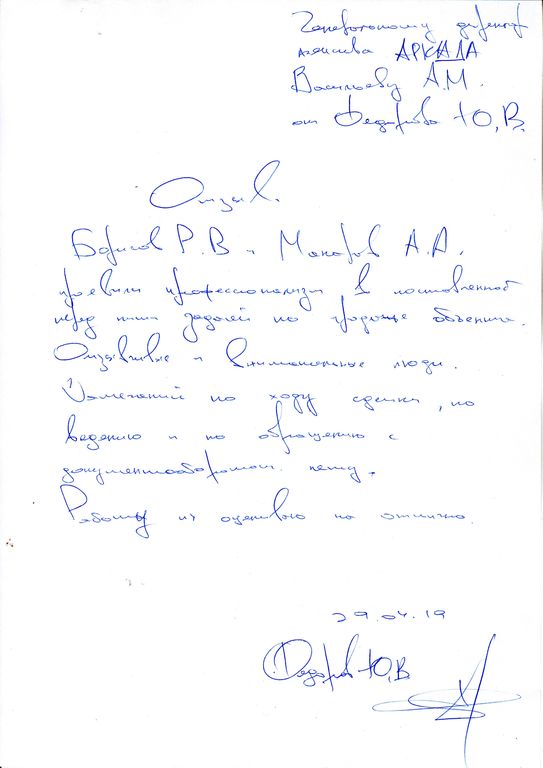 Генеральному директору
агенства АРКАДА
Васильеву А.М.
от Федорова Ю.В.
Отзыв.
Борисов Р.В и Макаров А.А.
проявили профессионализм в поставленной
перед ними задачей по продаже объекта.
Отзывчивые и внимательные люди.
Замечаний по ходу сделки, по
ведению и по обращению с
документооборотом нету.
Работу их оцениваю на отлично.
29.04.19
Федоров Ю.В